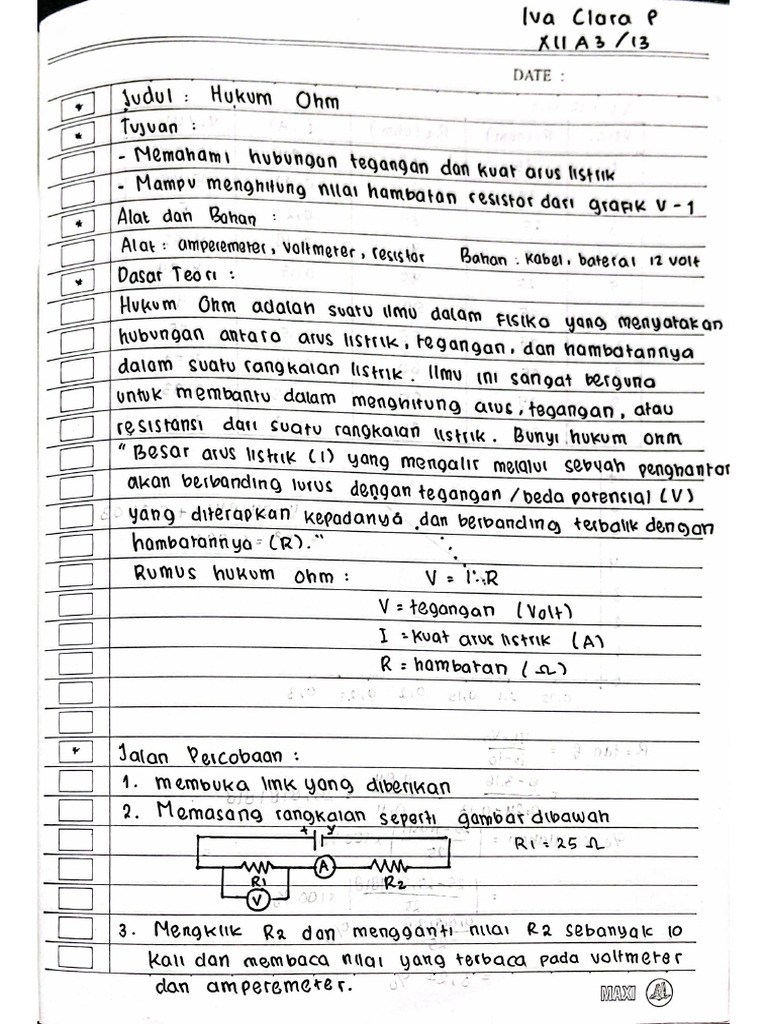 Iva Clara P
XII A3 / 13
DATE :
* Judul : Hukum Ohm
* Tujuan :
- Memahami hubungan tegangan dan kuat arus listrik
- Mampu menghitung nilai hambatan resistor dari grafik V - I
* Alat dan Bahan :
Alat : amperemeter, voltmeter, resistor Bahan : kabel, baterai 12 volt
* Dasar Teori :
Hukum Ohm adalah suatu ilmu dalam FISIKA yang menyatakan
hubungan antara arus listrik, tegangan, dan hambatannya
dalam suatu rangkaian listrik. Ilmu ini sangat berguna
untuk membantu dalam menghitung arus, tegangan, atau
resistansi dari suatu rangkaian listrik. Bunyi hukum ohm
"Besar arus listrik (I) yang mengalir melalui sebuah penghantar
akan berbanding lurus dengan tegangan / beda potensial (V)
yang diterapkan kepadanya dan berbanding terbalik dengan
hambatannya (R)."
Rumus hukum ohm : V = I . R
V = tegangan (Volt)
I = kuat arus listrik (A)
R = hambatan (Ω)
* Jalan Percobaan :
1. membuka link yang diberikan
2. Memasang rangkaian seperti gambar dibawah
+ y R1 = 25 Ω
R1 A R2
V
3. Mengklik R2 dan mengganti nilai R2 sebanyak 10
kali dan membaca nilai yang terbaca pada voltmeter
dan amperemeter.
MAXI